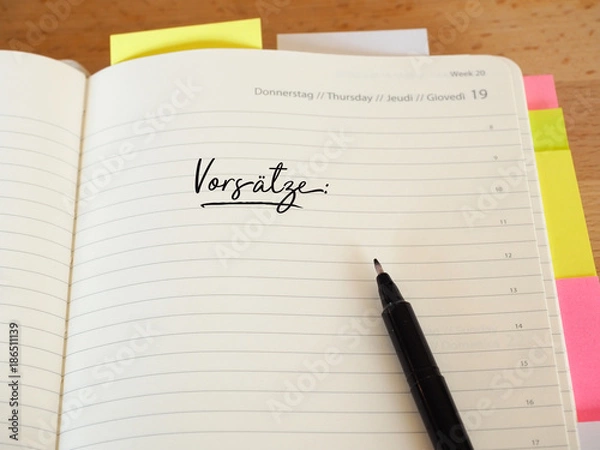 Week 20
Donnerstag // Thursday // Jeudi // Giovedì 19
8
9
Vorsätze:
10
11
12
13
14
15
16
17
Adobe Stock | #186511139